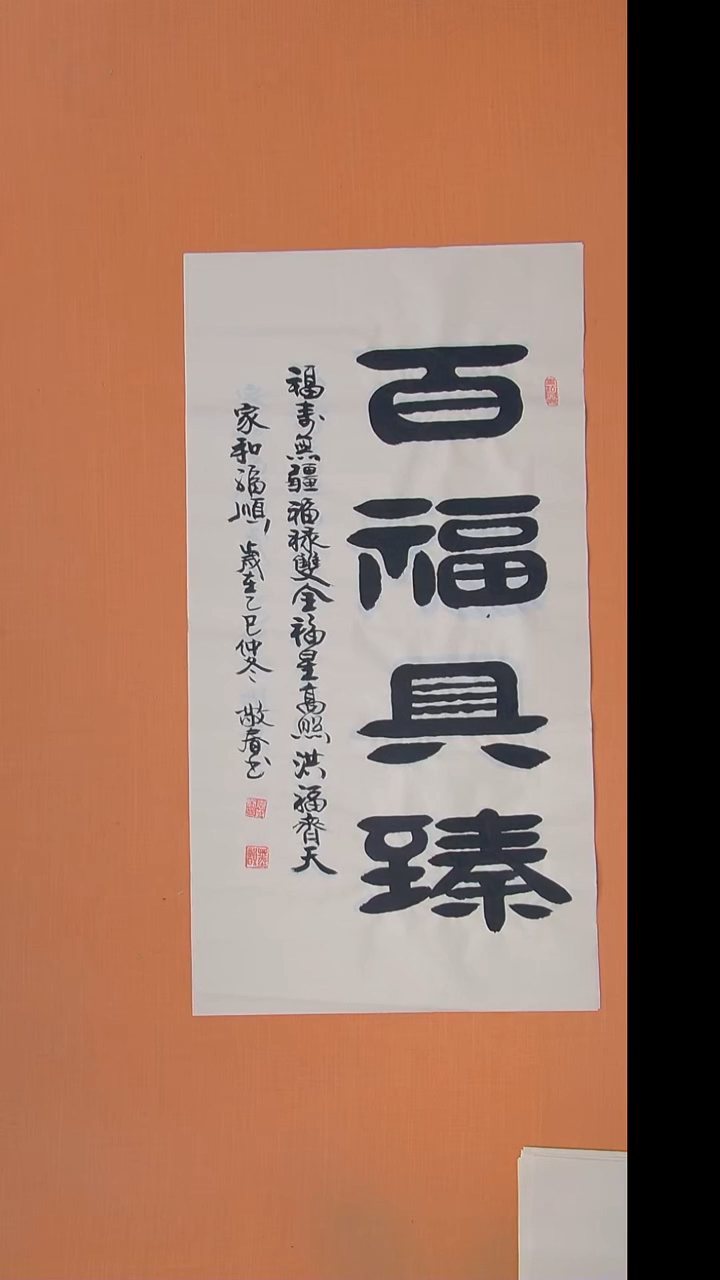 百福具臻
福寿無疆福禄雙全福星高照洪福齊天
家和福順歲在乙巳仲冬 敬春书